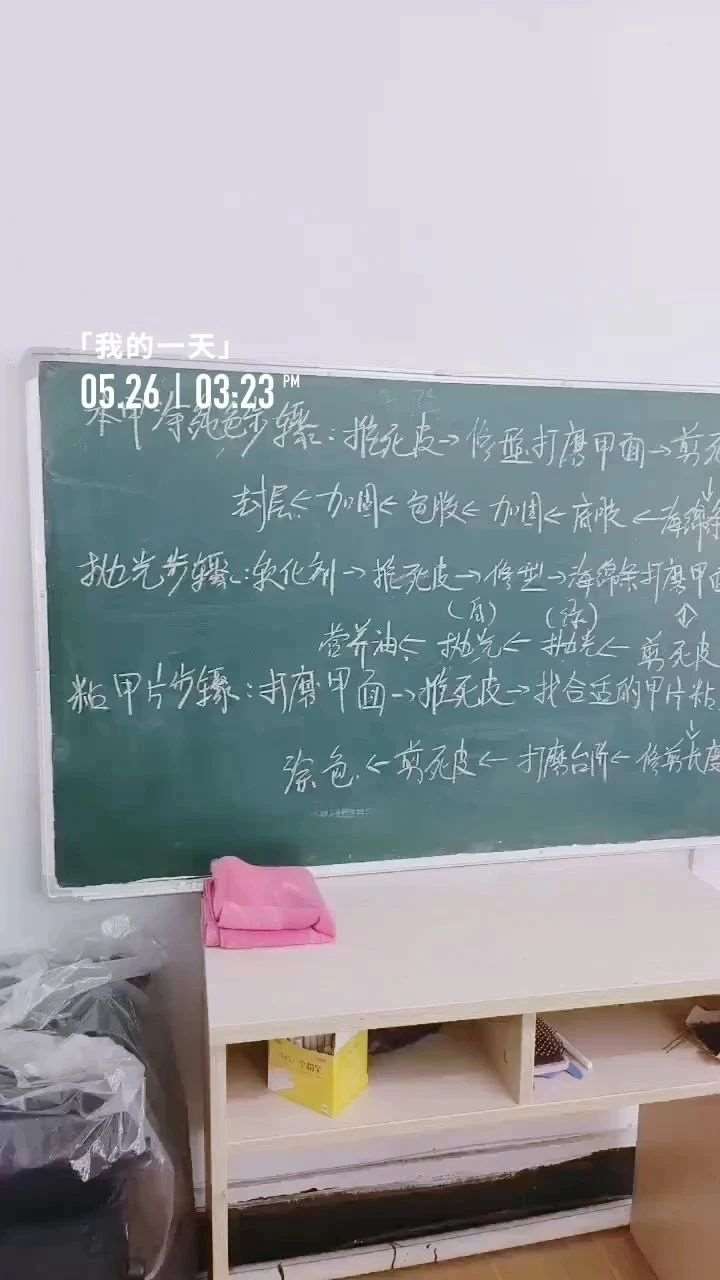 「我的一天」
05.26 | 03:23 PM
本甲涂纯色步骤：推死皮→修型.打磨甲面→剪死
↓
封层←加固←色胶←加固←底胶←海绵条
抛光步骤：软化剂→推死皮→修型→海绵条打磨甲面
(白) (绿) ↑
营养油←抛光←抛光←剪死皮
粘甲片步骤：打磨甲面→推死皮→找合适的甲片粘
↓
涂色.←剪死皮←打磨台阶←修剪长度